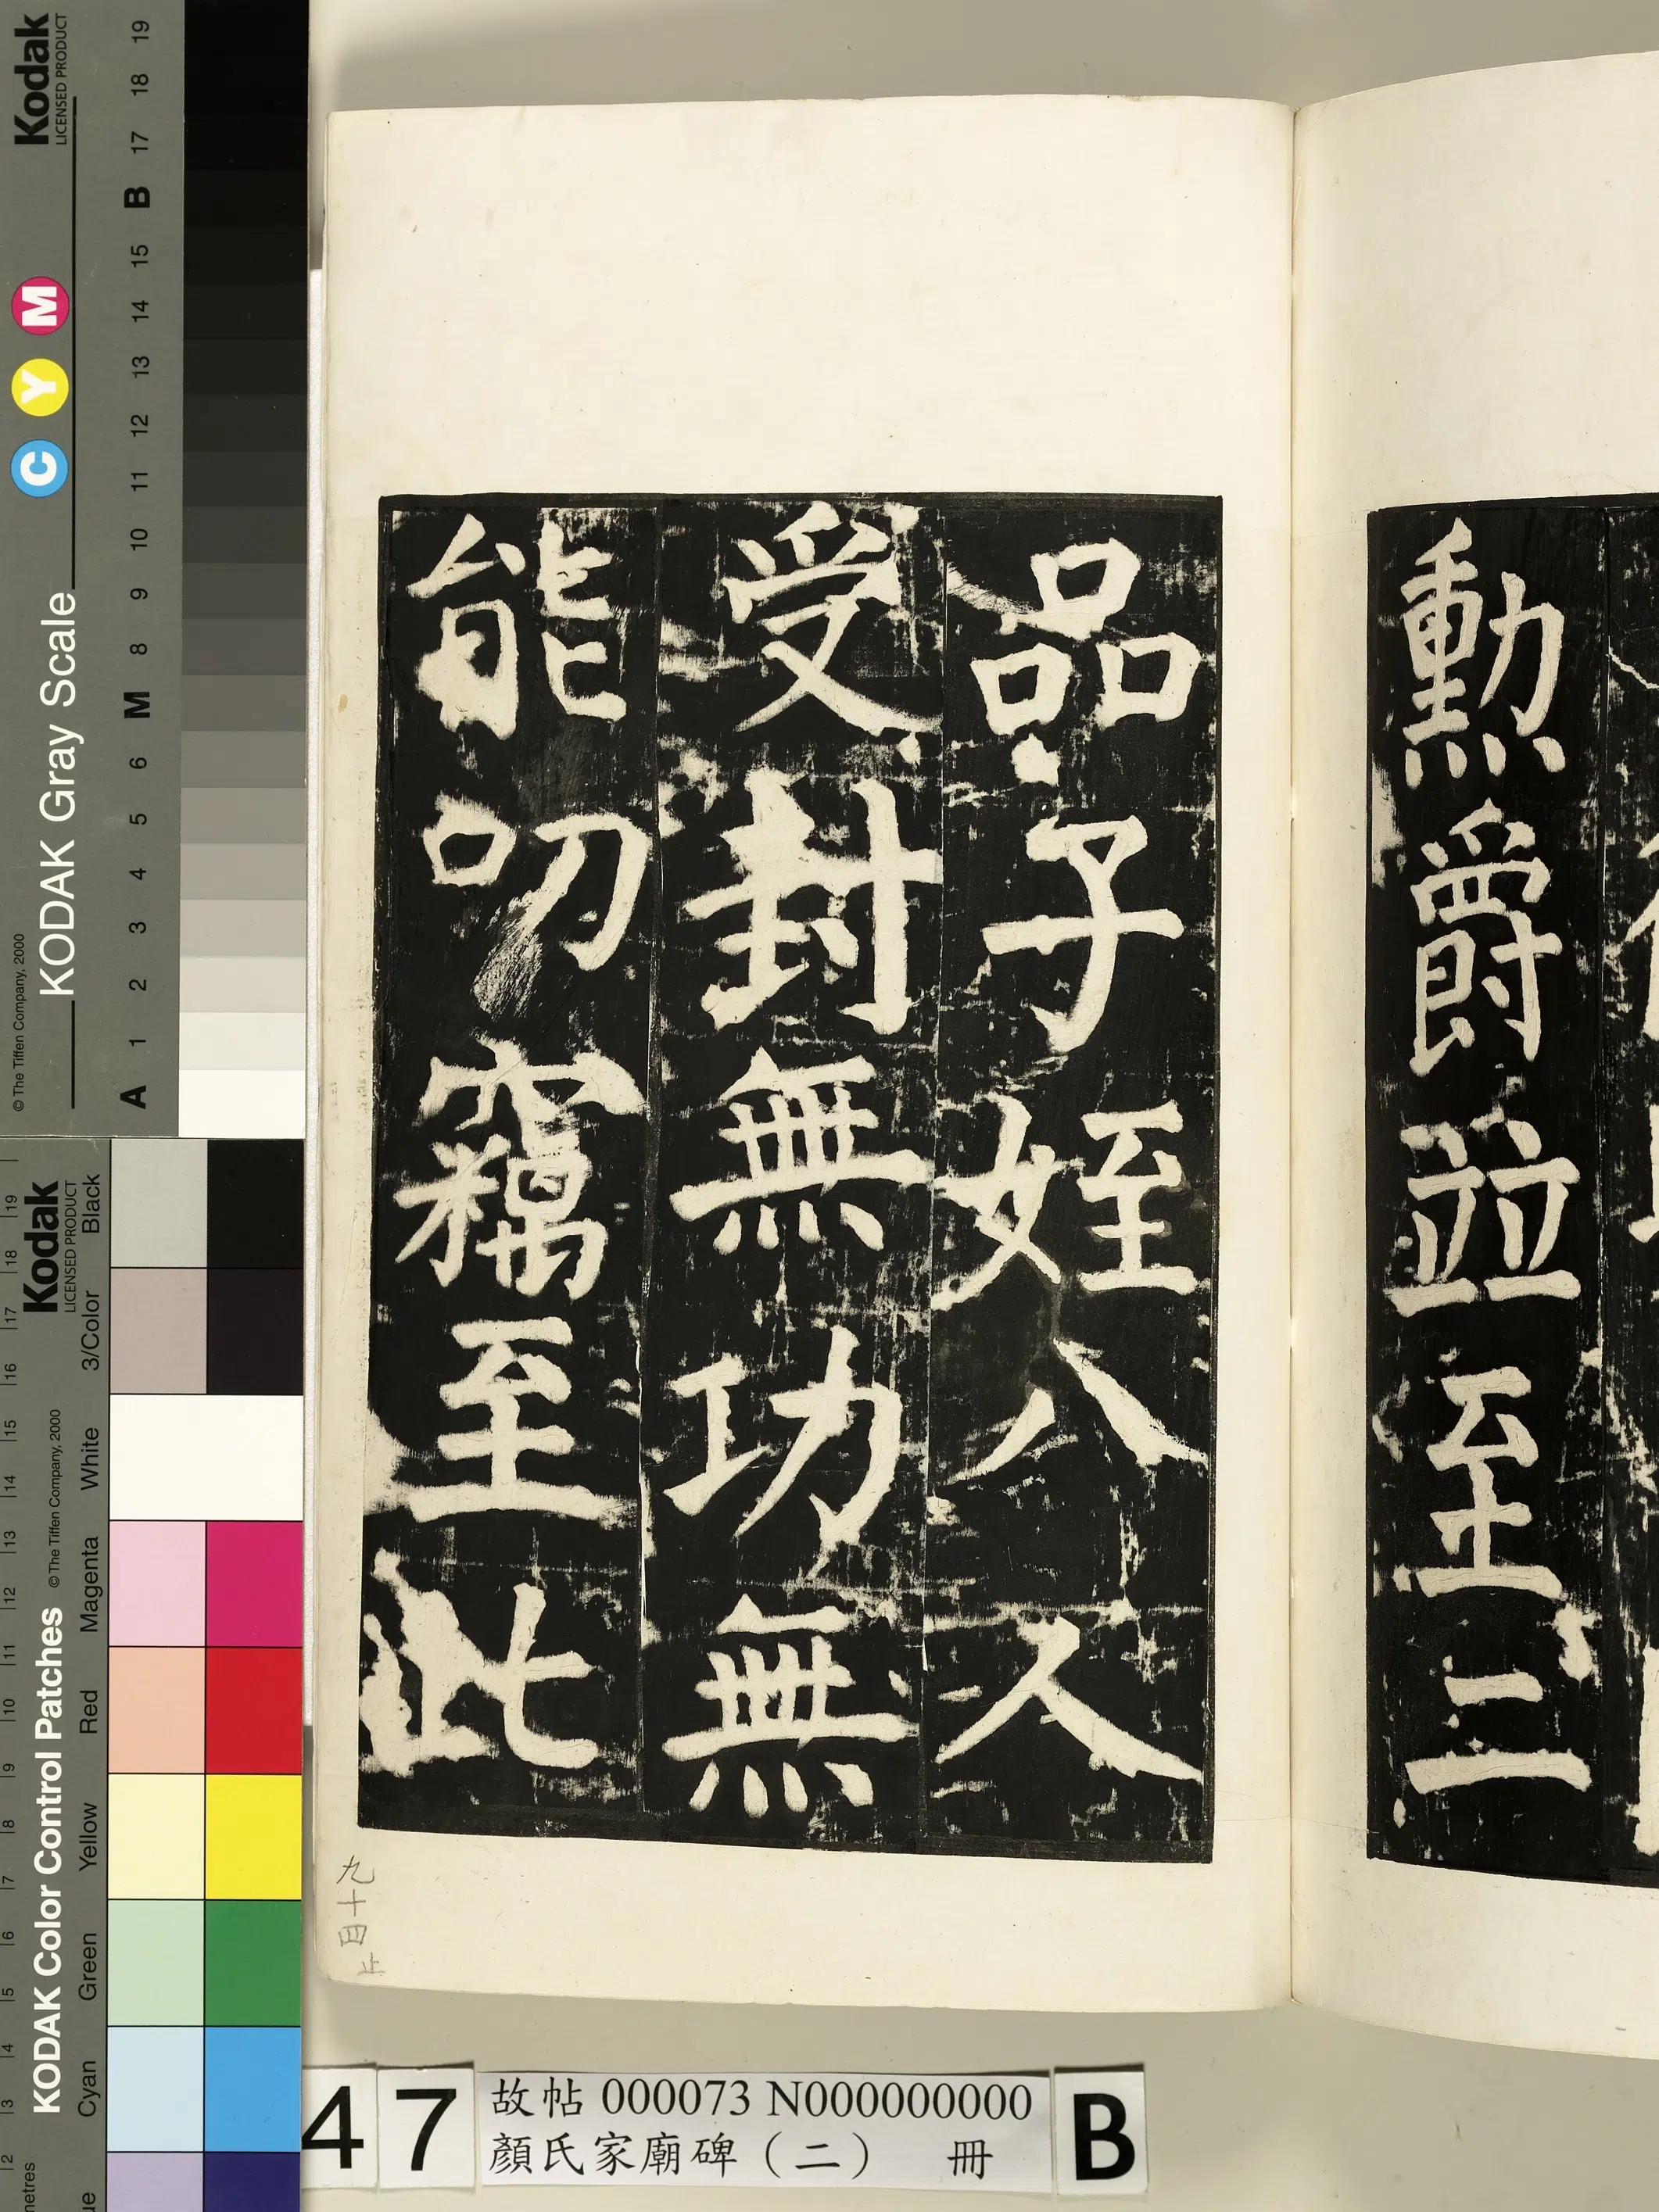 勳爵並至三
品子姪八人
受封無功無
能叨竊至此
九十四止
47
故帖 000073 N000000000
顏氏家廟碑（二） 冊
B
Kodak
LICENSED PRODUCT
KODAK Gray Scale
C Y M
© The Tiffen Company, 2000
A 1 2 3 4 5 6 M 8 9 10 11 12 13 14 15 B 17 18 19
Kodak
LICENSED PRODUCT
KODAK Color Control Patches
© The Tiffen Company, 2000
Cyan Green Yellow Red Magenta White 3/Color Black
2 3 4 5 6 7 8 9 10 11 12 13 14 15 16 17 18 19